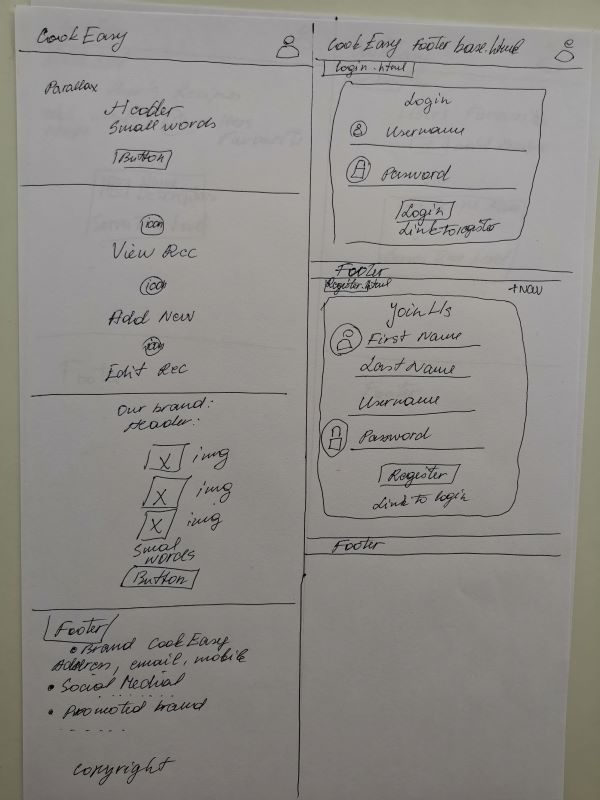 Cook Easy
Parallax
Header
Small words
Button
icon
View Rec
icon
Add New
icon
Edit Rec
Our brand:
Header:
X img
X img
X img
Smal
words
Button
Footer
• Brand Cook Easy
Address, email, mobile
• Social Medial
• Promoted brand
copyright
Cook Easy Footer base.html
Login.html
Login
Username
Password
Login
Link to register
Footer
Register.html
+ NAV
Join Us
First Name
Last Name
Username
Password
Register
Link to login
Footer